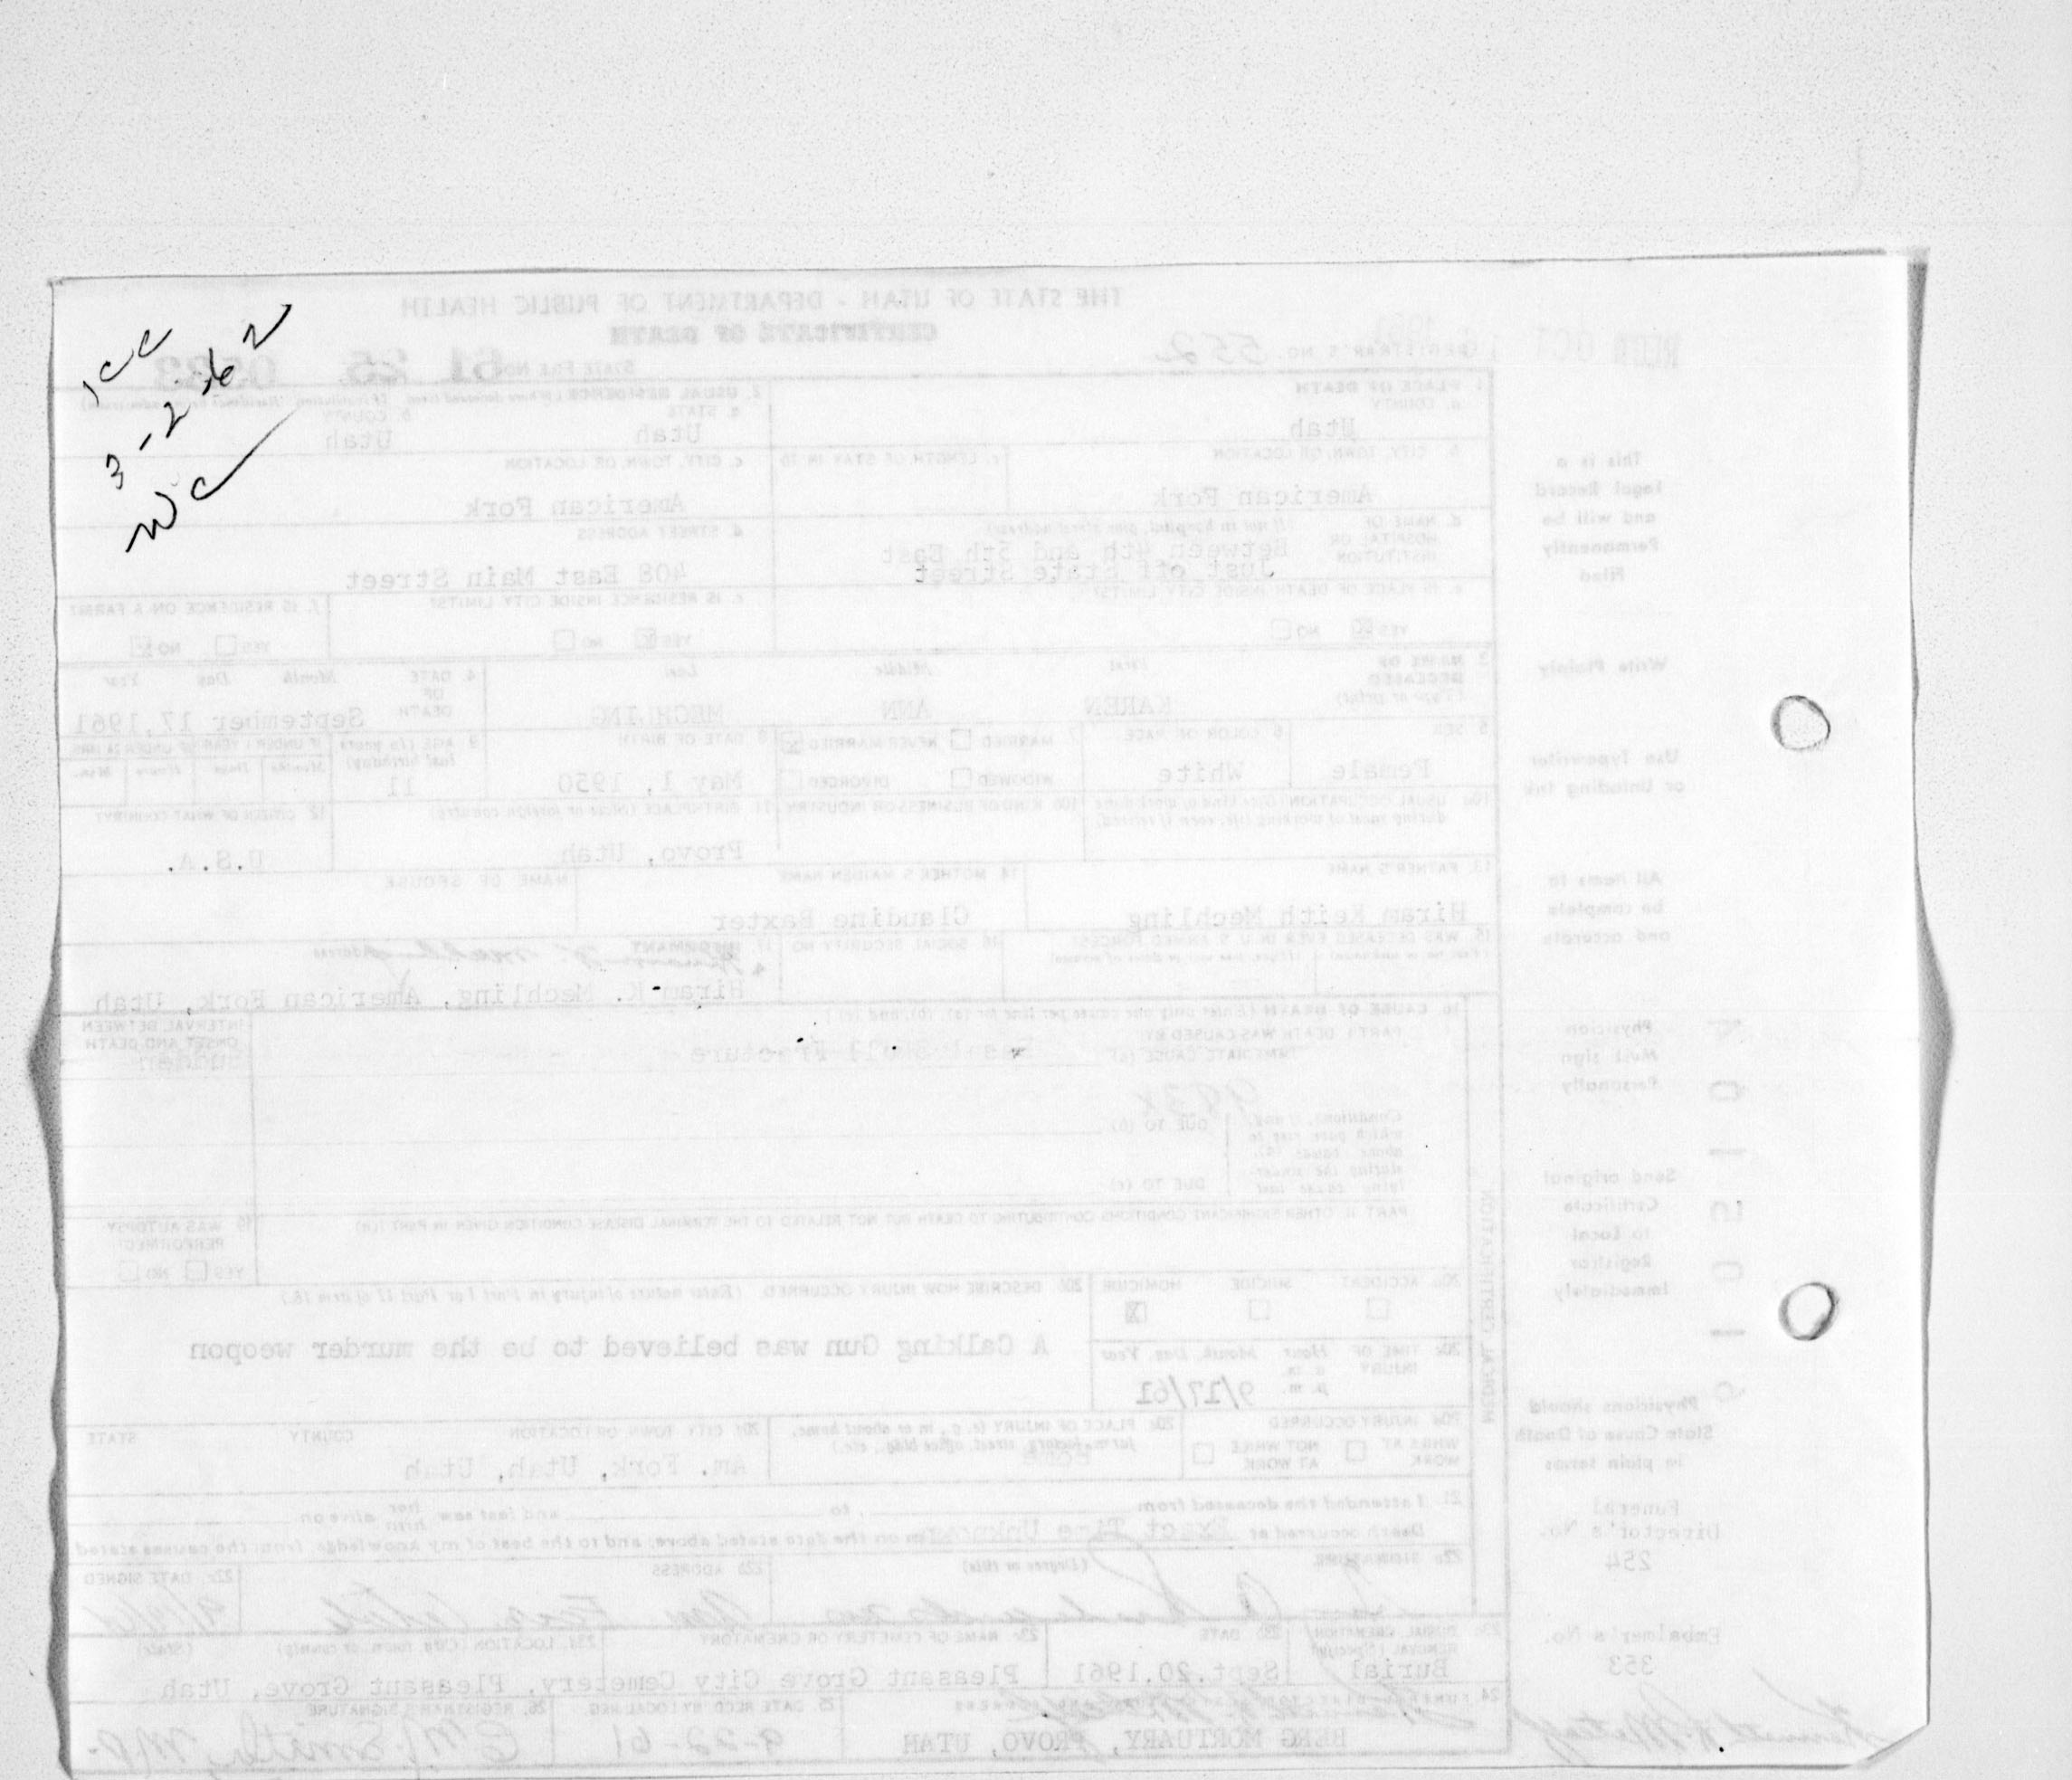 1 cc
3-2-62
wc
THE STATE OF UTAH - DEPARTMENT OF PUBLIC HEALTH
CERTIFICATE OF DEATH
REC'D OCT
REGISTRAR'S NO. 552
STATE FILE NO. 61 25
1. PLACE OF DEATH
a. COUNTY
Utah
2. USUAL RESIDENCE
a. STATE
Utah
b. COUNTY
Utah
b. CITY, TOWN, OR LOCATION
American Fork
c. LENGTH OF STAY IN 1b
c. CITY, TOWN, OR LOCATION
American Fork
d. NAME OF HOSPITAL OR INSTITUTION
(If not in hospital, give street address)
Between 4th and 5th East
Just off State Street
d. STREET ADDRESS
408 East Main Street
e. IS PLACE OF DEATH INSIDE CITY LIMITS?
YES NO
e. IS RESIDENCE INSIDE CITY LIMITS?
YES NO
f. IS RESIDENCE ON A FARM?
YES NO
3. NAME OF DECEASED
(Type or print)
First Middle Last
KAREN ANN MECHLING
4. DATE OF DEATH
Month Day Year
September 17, 1961
5. SEX
Female
6. COLOR OR RACE
White
7. MARRIED NEVER MARRIED
WIDOWED DIVORCED
8. DATE OF BIRTH
May 1, 1950
9. AGE (In years last birthday)
11
IF UNDER 1 YEAR IF UNDER 24 HRS.
Months Days Hours Min.
10a. USUAL OCCUPATION (Give kind of work done during most of working life, even if retired)
10b. KIND OF BUSINESS OR INDUSTRY
11. BIRTHPLACE (State or foreign country)
Provo, Utah
12. CITIZEN OF WHAT COUNTRY?
U.S.A.
13. FATHER'S NAME
Hiram Keith Mechling
14. MOTHER'S MAIDEN NAME
Claudine Baxter
NAME OF SPOUSE
15. WAS DECEASED EVER IN U. S. ARMED FORCES?
16. SOCIAL SECURITY NO.
17. INFORMANT Address
Hiram K. Mechling, American Fork, Utah
18. CAUSE OF DEATH (Enter only one cause per line for (a), (b), and (c))
PART I. DEATH WAS CAUSED BY:
IMMEDIATE CAUSE (a) Skull Fracture
INTERVAL BETWEEN ONSET AND DEATH
Sudden
Conditions, if any, which gave rise to above cause (a), stating the underlying cause last
DUE TO (b)
DUE TO (c)
PART II. OTHER SIGNIFICANT CONDITIONS CONTRIBUTING TO DEATH BUT NOT RELATED TO THE TERMINAL DISEASE CONDITION GIVEN IN PART I(a)
19. WAS AUTOPSY PERFORMED?
YES NO
20a. ACCIDENT SUICIDE HOMICIDE
20b. DESCRIBE HOW INJURY OCCURRED. (Enter nature of injury in Part I or Part II of item 18.)
A Calking Gun was believed to be the murder weopon
20c. TIME OF INJURY
Hour Month, Day, Year
a. m.
p. m. 9/17/61
20d. INJURY OCCURRED
WHILE AT WORK NOT WHILE AT WORK
20e. PLACE OF INJURY (e. g., in or about home, farm, factory, street, office bldg., etc.)
Home
20f. CITY, TOWN, OR LOCATION COUNTY STATE
Am. Fork, Utah, Utah
21. I attended the deceased from to and last saw her him alive on
Death occurred at Exact Time Unknown m on the date stated above; and to the best of my knowledge, from the causes stated
22a. SIGNATURE (Degree or title)
22b. ADDRESS
22c. DATE SIGNED
23a. BURIAL, CREMATION, REMOVAL (Specify)
Burial
23b. DATE
Sept.20.1961
23c. NAME OF CEMETERY OR CREMATORY
23d. LOCATION (City, town, or county) (State)
Pleasant Grove City Cemetery, Pleasant Grove, Utah
24. FUNERAL DIRECTOR ADDRESS
BERG MORTUARY, PROVO, UTAH
25. DATE REC'D BY LOCAL REG.
9-22-61
26. REGISTRAR'S SIGNATURE
MEDICAL CERTIFICATION
This is a
Legal Record
and will be
Permanently
Filed
Write Plainly
Use Typewriter
or Unfading Ink
All Items to
be complete
and accurate
Physician
Must sign
Personally
Send original
Certificate
to Local
Registrar
Immediately
Physicians should
State Cause of Death
in plain terms
Funeral
Director's No.
254
Embalmer's No.
353